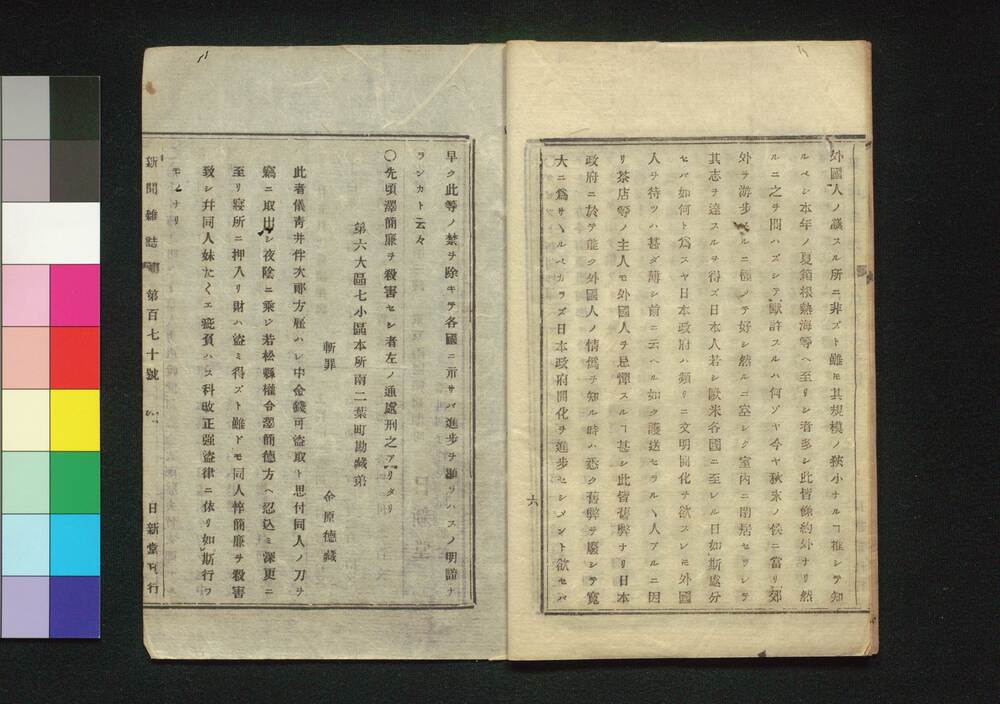 外國人ノ議スル所ニ非ズト雖モ其規模ノ狹小ナルヿ推シテ知
ルベシ本年ノ夏箱根熱海等ヘ至リシ者多シ此皆條約外ナリ然
ルニ之ヲ問ハズシテ默許スルハ何ゾヤ今ヤ秋末ノ候ニ當リ郊
外ヲ游歩スルニ極ノテ好シ然ルニ空シク室內ニ閉居セシレテ
其志ヲ達スルヲ得ズ日本人若シ歐米各國ニ至レル日如斯處分
セバ如何ト爲スヤ日本政府ハ頻リニ文明開化ヲ欲スレ𪜈外國
人ヲ待ツハ甚ダ薄シ前ニ云ヘル如ク護送セラルヽ人アルニ因
リ茶店等ノ主人モ外國人ヲ忌憚スルヿ甚シ此皆舊弊ナリ日本
政府ニ於テ能ク外國人ノ情僞ヲ知ル時ハ悉ク舊弊ヲ廢シテ寬
大ニ爲サヾルベカラズ日本政府開化ヲ進歩セシメント欲セバ
六
早ク此等ノ禁ヲ除キテ各國ニ示サバ進歩ヲ顯ラハスノ明證ナ
ランカト云々
〇先頃澤簡廉ヲ殺害セシ者左ノ通處刑之アリタリ
第六大區七小區本所南二葉町勘藏弟
斬罪 金原德藏
此者儀靑井伴次郎方雇ハレ中金錢可盜取ト思付同人ノ刀ヲ
竊ニ取出シ夜陰ニ乘ジ若松縣權令澤簡德方ヘ忍込ミ深更ニ
至リ寢所ニ押入リ財ハ盜ミ得ズト雖ドモ同人悴簡廉ヲ殺害
致シ幷同人妹たくエ疵負ハス科改正强盜律ニ依リ如斯行フ
モノナリ
新聞雜誌 第百七十號 日新堂刊行